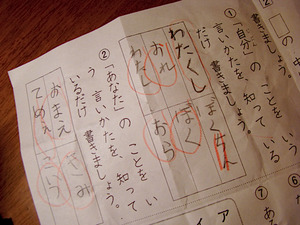 ①「自分」の 言いかたを 知っている
だけ 書きましょう。
わたくし
おれ
ぼく
わたし
おら
②「あなた」の ことを い
う 言いかたを 知って
いるだけ 書きましょう。
おまえ
きみ
てめえ
⑥
⑦